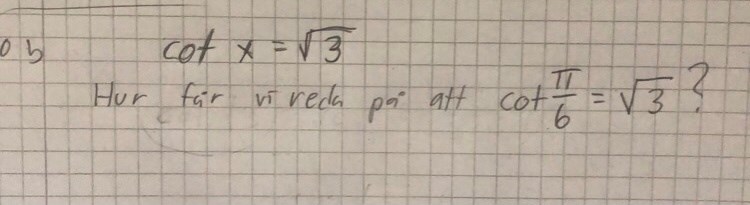 0 b cot x = √3
Hur får vi reda på att cot π/6 = √3?